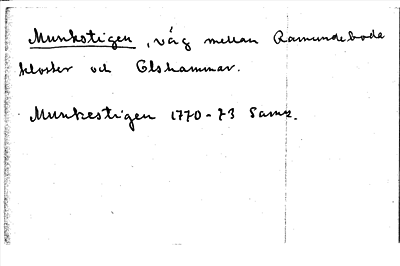 Munkstigen, väg mellan Ramundeboda
kloster och Olshammar.
Munkestigen 1770-73 Saml.